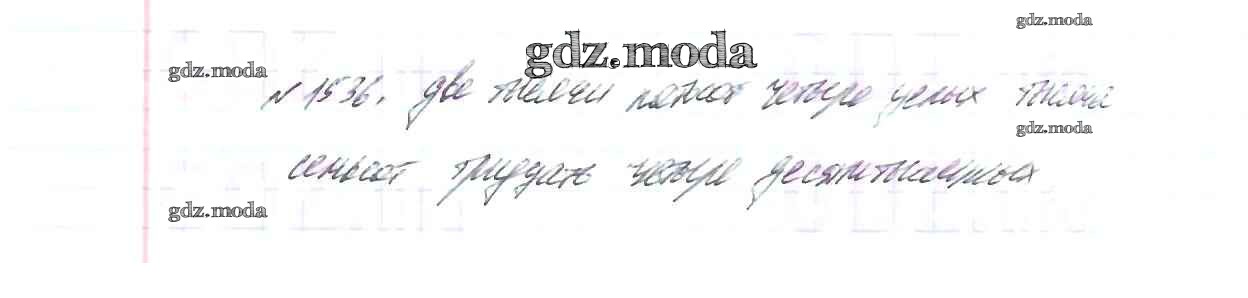 gdz.moda
gdz.moda
gdz.moda
№ 1536. две тысячи пятьсот четыре целых тысяча
gdz.moda
семьсот тридцать четыре десятитысячных
gdz.moda